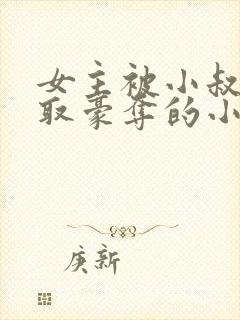 女主被小叔
取豪夺的小
庚新